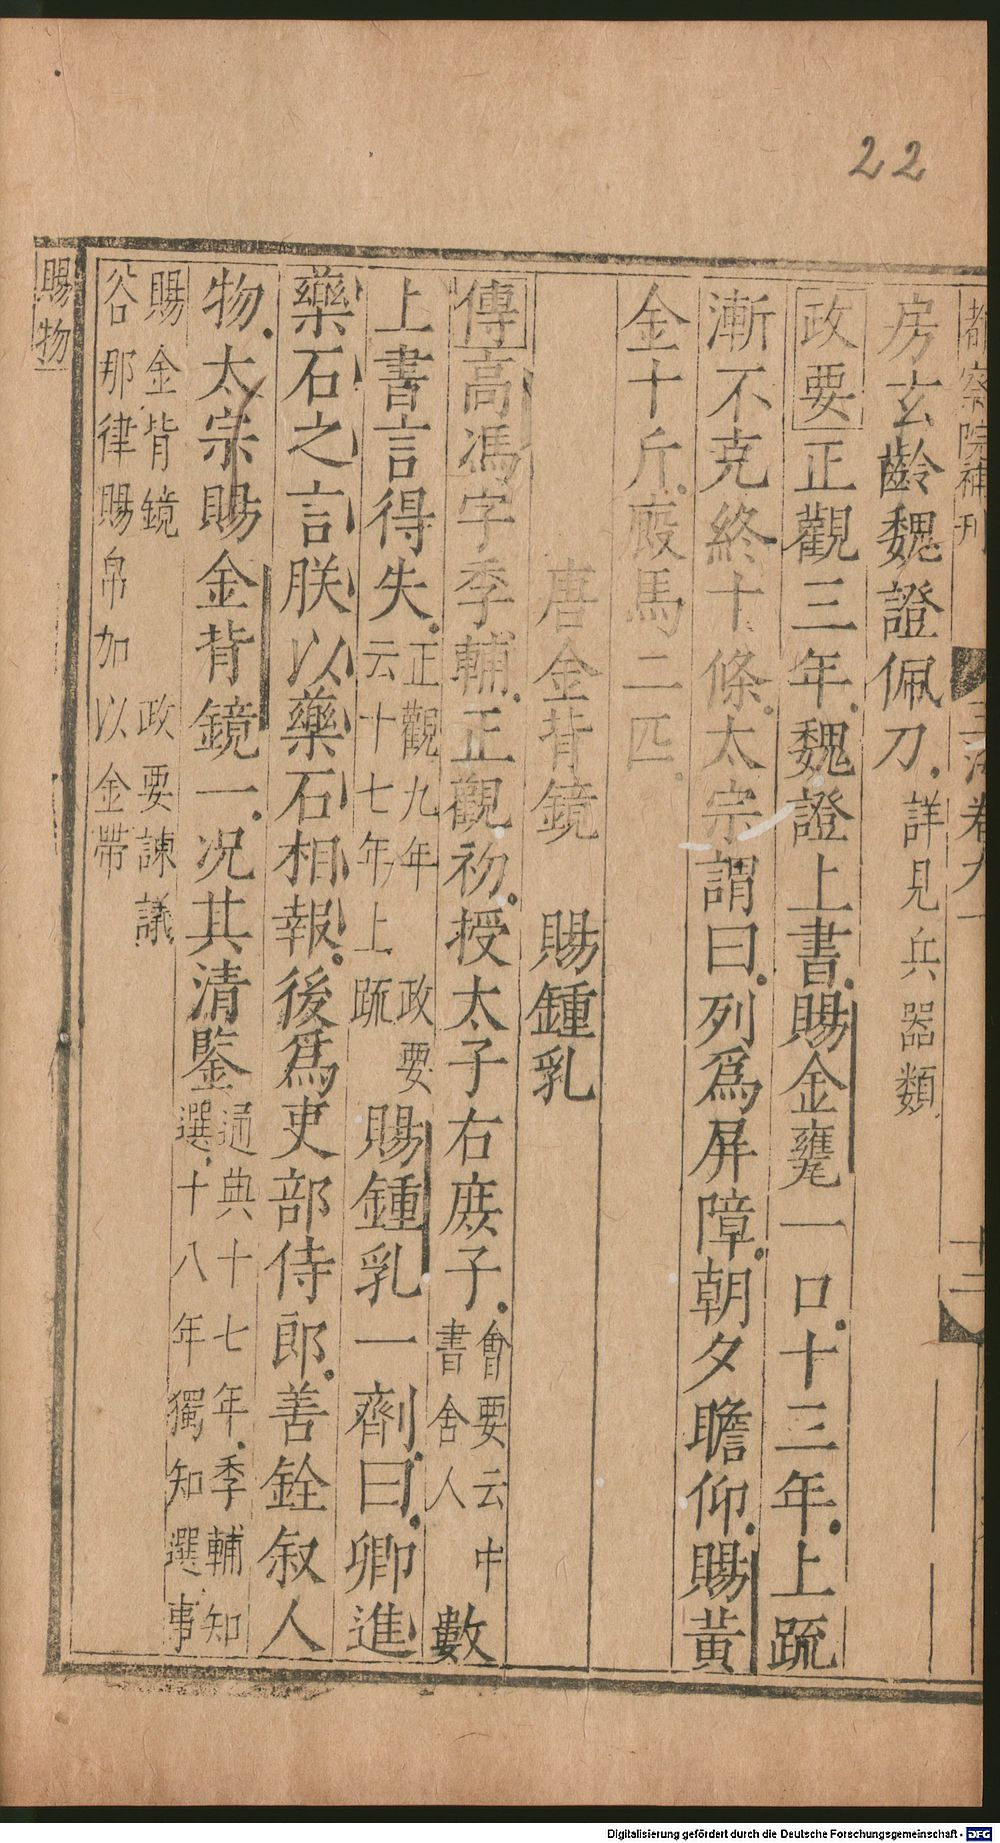 22
都察院補刊
玉海卷九一
十二
房玄齡魏證佩刀詳見兵器類
政要正觀三年魏證上書賜金甕一口十三年上疏
漸不克終十條太宗謂曰列爲屏障朝夕瞻仰賜黃
金十斤廄馬二匹
唐金背鏡　賜鍾乳
傳高馮字季輔正觀初授太子右庶子會要云中書舍人數
上書言得失正觀九年政要云十七年上疏賜鍾乳一劑曰卿進
藥石之言朕以藥石相報後爲吏部侍郎善銓叙人
物太宗賜金背鏡一况其清鑒通典十七年季輔知選十八年獨知選事
賜金背鏡　政要諫議
谷那律賜帛加以金帶
賜物
Digitalisierung gefördert durch die Deutsche Forschungsgemeinschaft - DFG